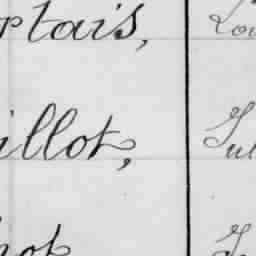 rtais, Lou
illot, Jul
hot